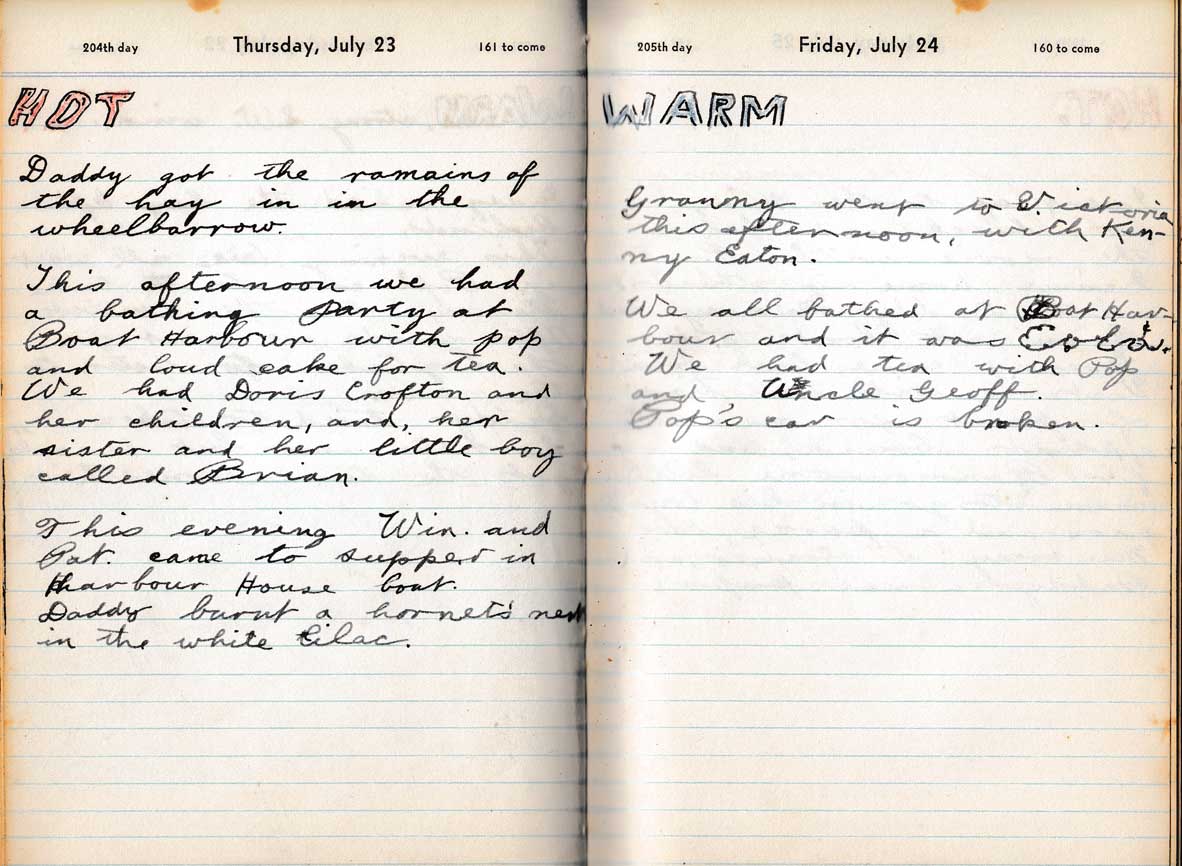 204th day Thursday, July 23 161 to come
HOT
Daddy got the ramains of
the hay in in the
wheelbarrow.
This afternoon we had
a bathing Party at
Boat Harbour with pop
and loud cake for tea.
We had Doris Crofton and
her children, and, her
sister and her little boy
called Brian.
This evening Win. and
Pat. came to supper in
Harbour House boat.
Daddy burnt a hornets' nest
in the white lilac.
205th day Friday, July 24 160 to come
WARM
Granny went to Victoria
this afternoon, with Ken-
ny Eaton.
We all bathed at Boat Har-
bour and it was
We had tea with Pop
and, Uncle Geoff.
Pop's car is broken.